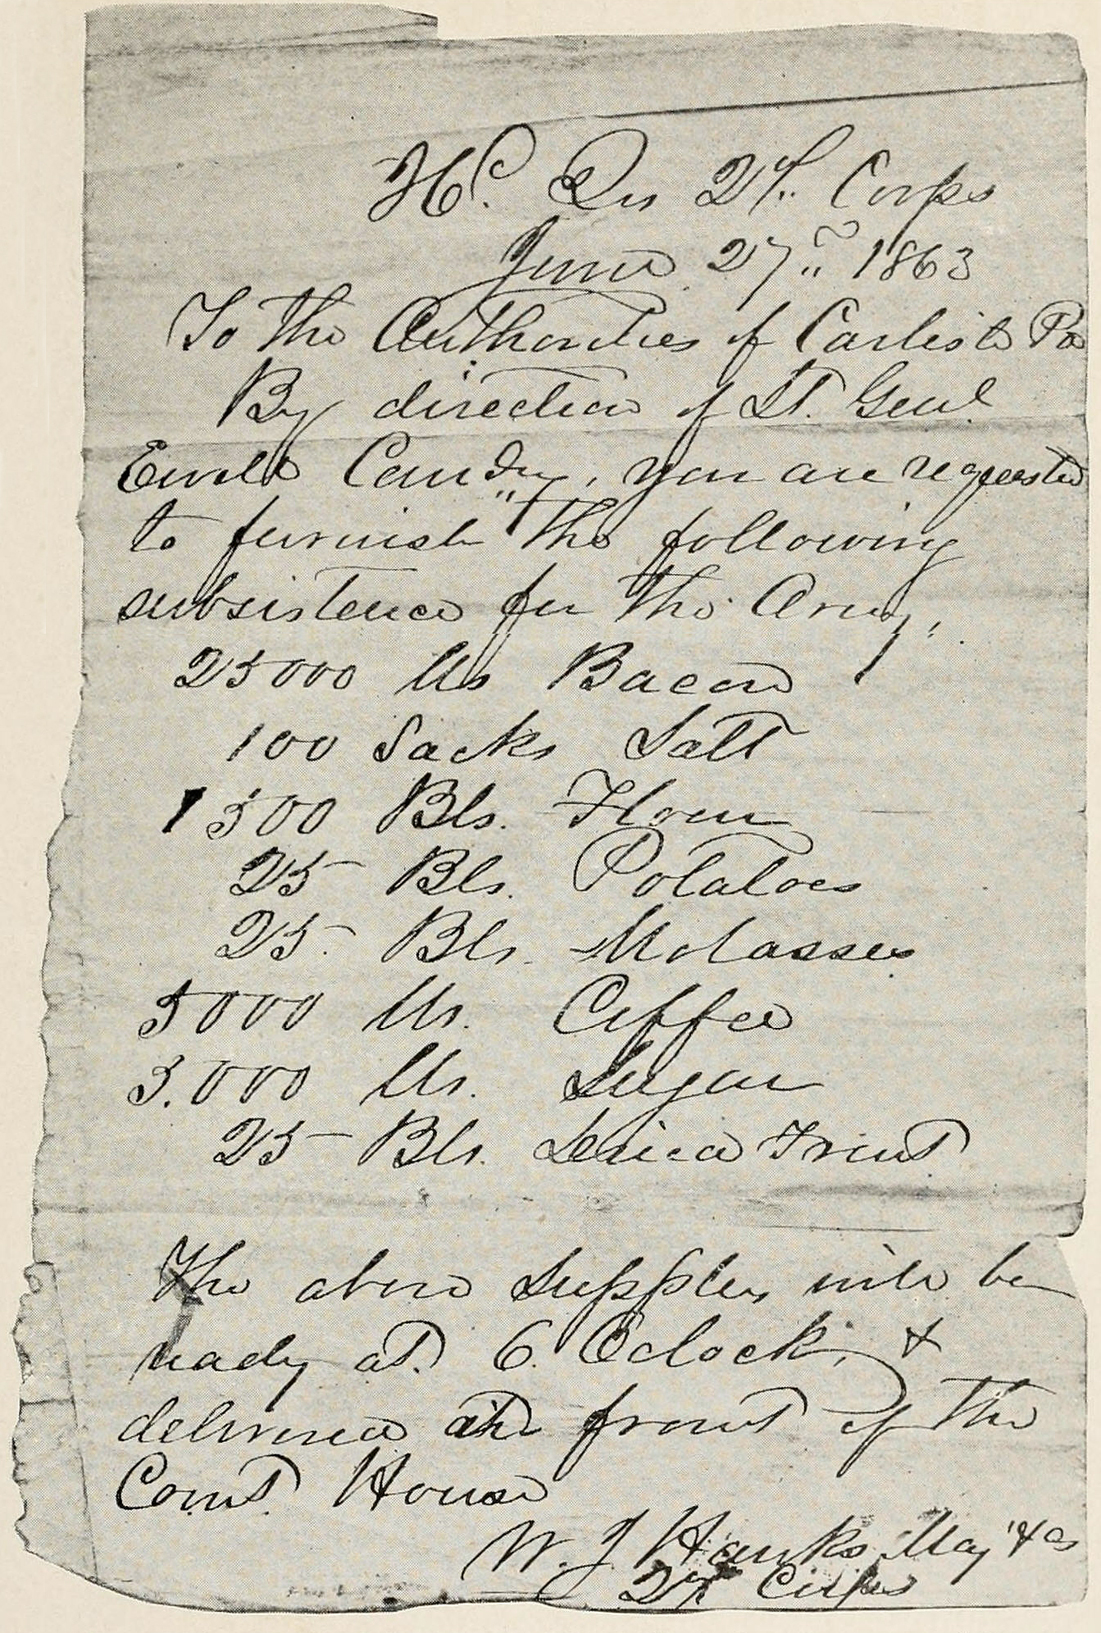 Hd. Qrs 2d.. Corps
June 27.. 1863
To the Authorities of Carlisle Pa
By direction of Lt. Genl
Ewell Comdg, you are requested
to furnish the following
subsistence for the Army,
25000 lbs Bacon
100 Sacks Salt
1500 Bls. Flour
25 Bls. Potatoes
25 Bls. Molasses
5000 lbs. Coffee
5.000 lbs. Sugar
25 Bls. Dried Fruit
The above Supplies will be
ready at 6. Oclock, &
delivered in front of the
Court House
W. J Hawks Maj & CS
2d Corps